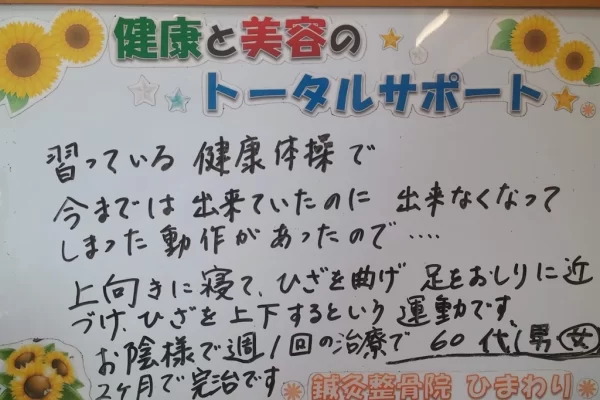 健康と美容の
トータルサポート
習っている 健康体操で
今までは 出来ていたのに 出来なくなって
しまった 動作が あったので ‥‥
上向きに 寝て、ひざを曲げ 足をおしりに近
づけ、ひざを上下するという 運動です、
お陰様で週1回の治療で 60代(男 女)
2ヶ月で完治です
鍼灸整骨院 ひまわり